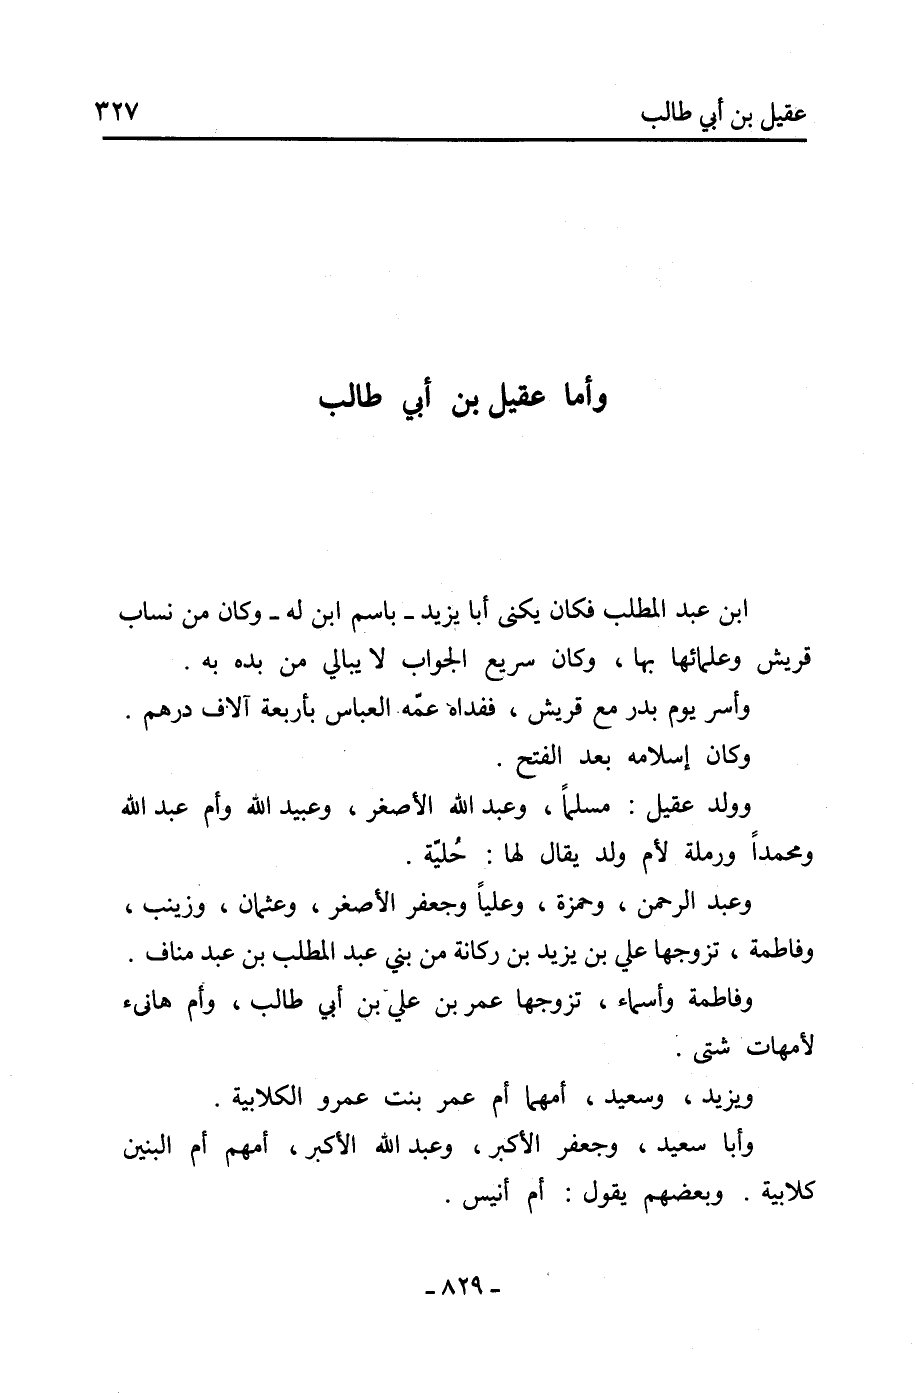 عقيل بن أبي طالب ٣٢٧
وأما عقيل بن أبي طالب
ابن عبد المطلب فكان يكنى أبا يزيد ـ باسم ابن له ـ وكان من نساب
قريش وعلمائها بها ، وكان سريع الجواب لا يبالي من بده به .
وأسر يوم بدر مع قريش ، ففداه عمّه العباس بأربعة آلاف درهم .
وكان إسلامه بعد الفتح .
وولد عقيل : مسلماً ، وعبد الله الأصغر ، وعبيد الله وأم عبد الله
ومحمداً ورملة لأم ولد يقال لها : حُليّة .
وعبد الرحمن ، وحمزة ، وعلياً وجعفر الأصغر ، وعثمان ، وزينب ،
وفاطمة ، تزوجها علي بن يزيد بن ركانة من بني عبد المطلب بن عبد مناف .
وفاطمة وأسماء ، تزوجها عمر بن علي بن أبي طالب ، وأم هانىء
لأمهات شتى .
ويزيد ، وسعيد ، أمهما أم عمر بنت عمرو الكلابية .
وأبا سعيد ، وجعفر الأكبر ، وعبد الله الأكبر ، أمهم أم البنين
كلابية . وبعضهم يقول : أم أنيس .
ـ ٨٢٩ ـ